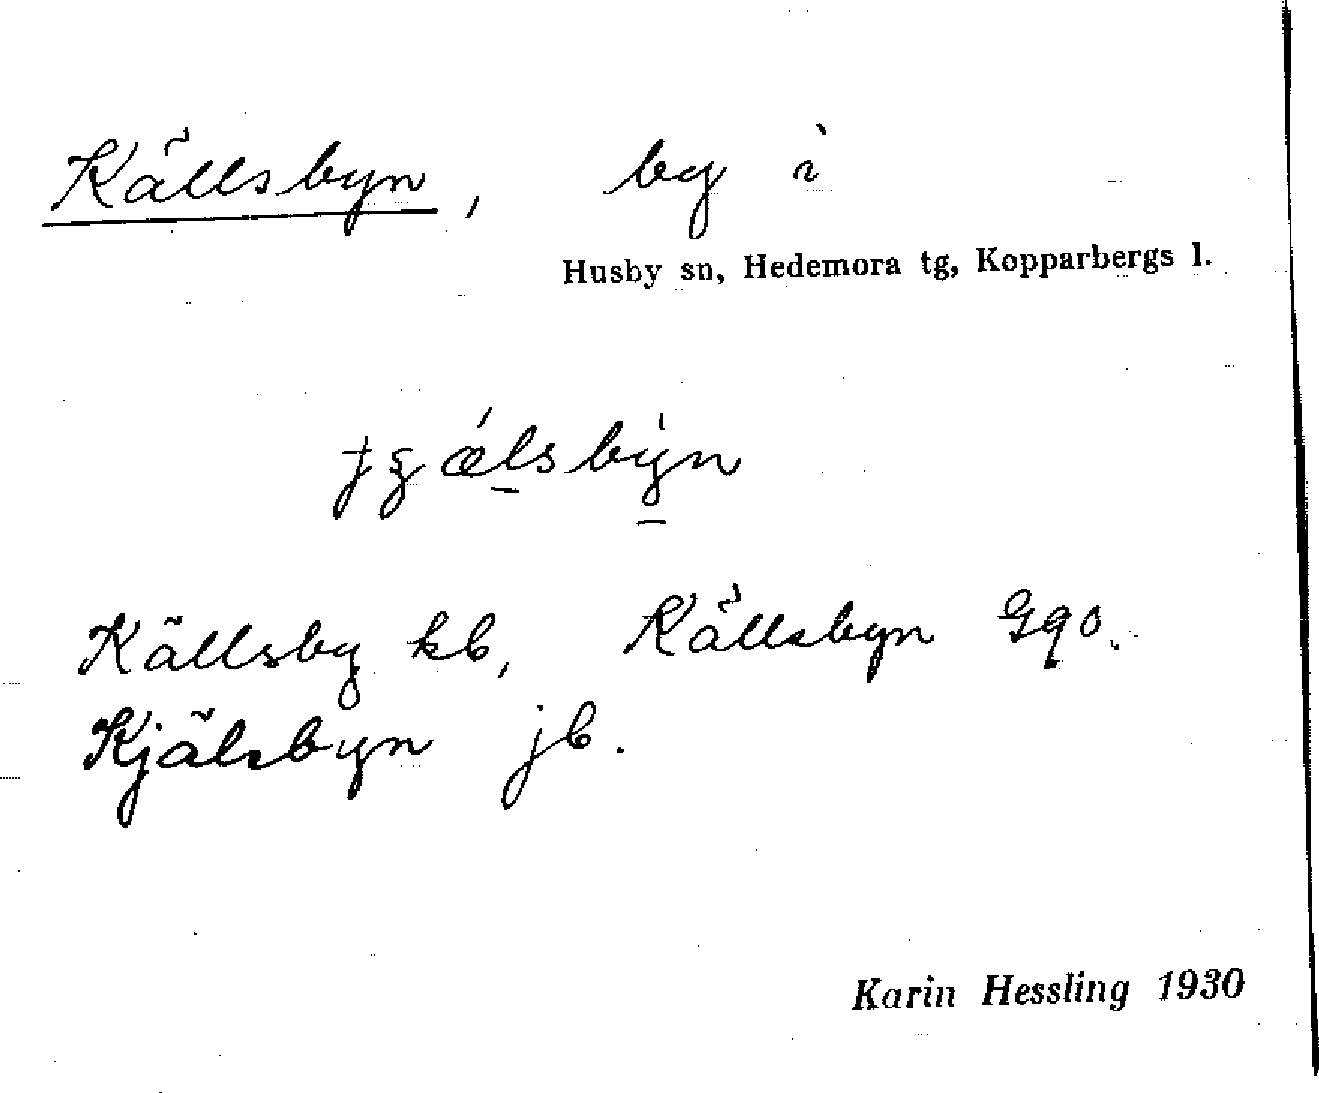 Källsbyn, by i
Husby sn, Hedemora tg, Kopparbergs l.
Källsby kb, Källsbyn Gqo.
Kjälsbyn jb.
Karin Hessling 1930